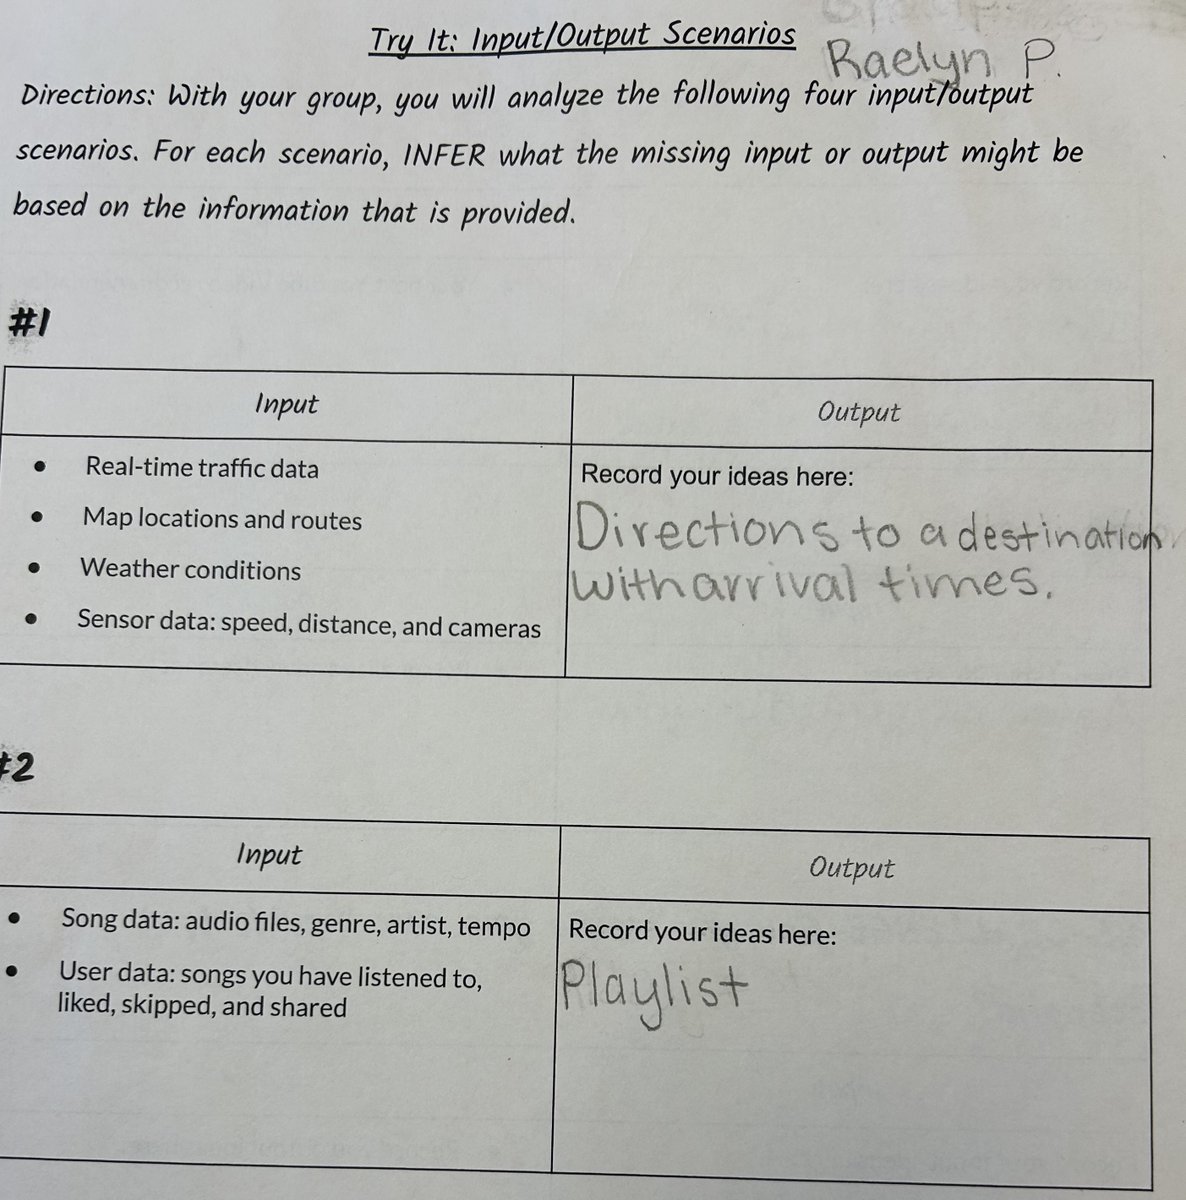 Try It: Input/Output Scenarios
Raelyn P.
Directions: With your group, you will analyze the following four input/output
scenarios. For each scenario, INFER what the missing input or output might be
based on the information that is provided.
#1
Input
Output
• Real-time traffic data
• Map locations and routes
• Weather conditions
• Sensor data: speed, distance, and cameras
Record your ideas here:
Directions to a destination
with arrival times.
#2
Input
Output
• Song data: audio files, genre, artist, tempo
• User data: songs you have listened to,
liked, skipped, and shared
Record your ideas here:
Playlist